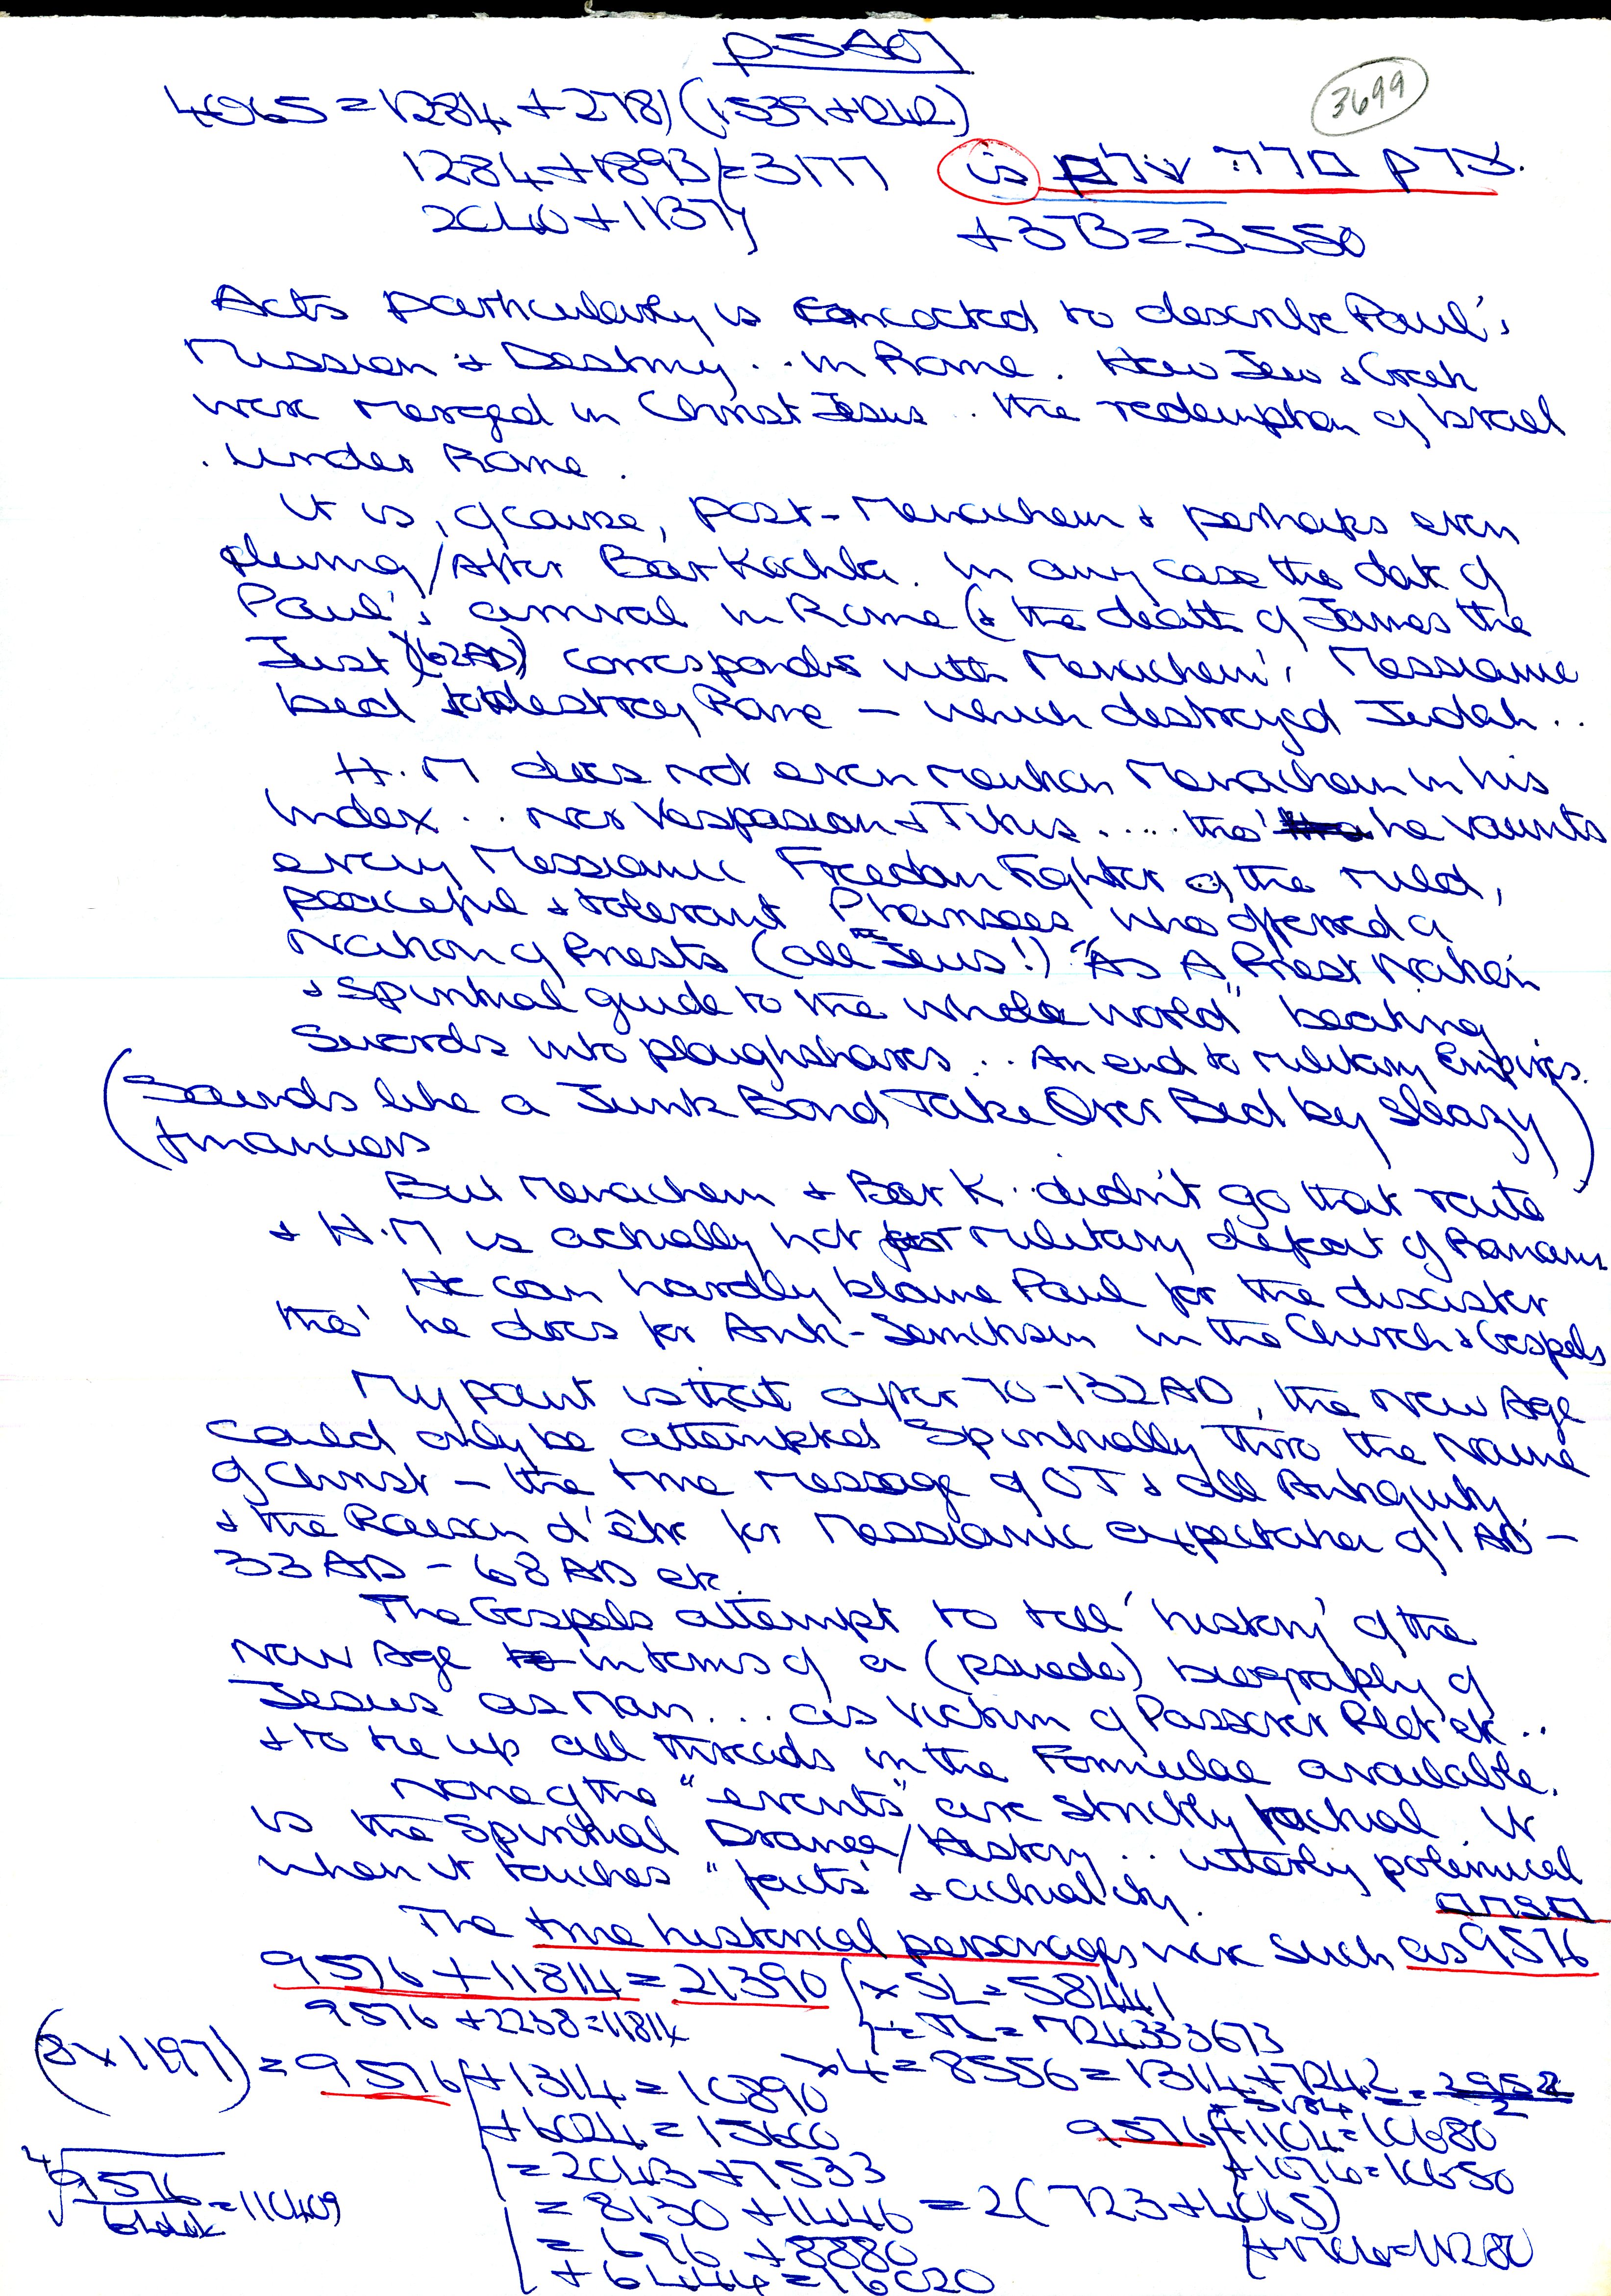 3699
4065 = 1284 + 2781 (1539 + 1242)
1284 + 1893 = 3177 is
2040 + 1137 + 373 = 3550
Acts particularly is concocted to describe Paul's
Mission & Destiny .. in Rome. How Jew & Greek
were merged in Christ Jesus .. the redemption of Israel
. under Rome.
It is, of course, post-Menachem & perhaps even
during/After Bar Kochba. In any case the date of
Paul's arrival in Rome (& the death of James the
Just) (62AD) corresponds with Menachem's Messianic
bid to destroy Rome – which destroyed Judah ..
H.M does not even mention Menachem in his
Index .. nor Vespasian & Titus ..... tho' he vaunts
every Messianic Freedom Fighter of the mild,
peaceful & tolerant Pharisees who offered a
Nation of Priests (all Jews!) "As A Priest Nation
& Spiritual guide to the whole world" beating
Swords into ploughshares ... An end to military Empires.
(Sounds like a Junk Bond Take Over Bid by Sleazy
financiers)
But Menachem & Bar K .. didn't go that route
& H.M is actually hot for military defeat of Romans
He can hardly blame Paul for the disaster
tho' he does for Anti-Semitism in the Church & Gospels
My point is that after 70-132AD, the New Age
could only be attempted Spiritually thro the Name
of Christ – the true message of OT & all Antiquity
& the Raison d'être for Messianic expectation of 1 AD –
33 AD – 68 AD etc.
The Gospels attempt to tell 'history' of the
New Age in terms of a (psuedo) biography of
Jesus as Man ... as Victim of Passover Plot etc ..
& to tie up all threads in the Formulae available.
None of the "events" are strictly factual. It
is the Spiritual Drama/History .. utterly polemical
when it touches "facts" & actuality.
The true historical personages were such as 9576
9576 + 11814 = 21390 x SL = 58441
9576 + 2238 = 11814
(8 x 1197) = 9576 + 1314 = 10890 x4 = 8556 = 1314 + 7242
+ 6024 = 15600 9576 + 1104 = 10680
= 2043 + 7533
= 8130 + 1446 = 2(723 + 4065)
= 696 + 8880
+ 6444 = 16020